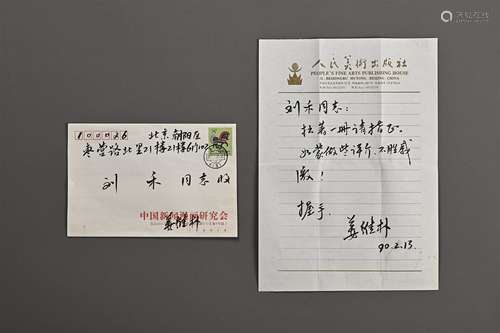 人民美術出版社
PEOPLE'S FINE ARTS PUBLISHING HOUSE
32 BEIZONGBU HUTONG BEIJING, CHINA
刘禾同志：
拙著一册请指正。
如蒙做些评介，不胜感
激！
握手
姜维朴
90.2.13
100026
北京朝阳区
枣营路北里21楼21楼6门102
刘禾 同志收
中国新闻漫画研究会
姜维朴